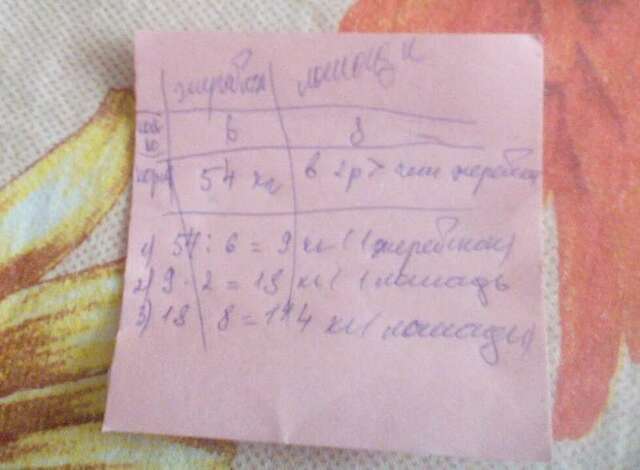 жеребён лошадки
кол во 6 8
корм 54 кг в 2р > чем жеребён
1) 54 : 6 = 9 кг (1 жеребёнок)
2) 9 · 2 = 18 кг (1 лошадь
3) 18 8 = 144 кг (лошади)